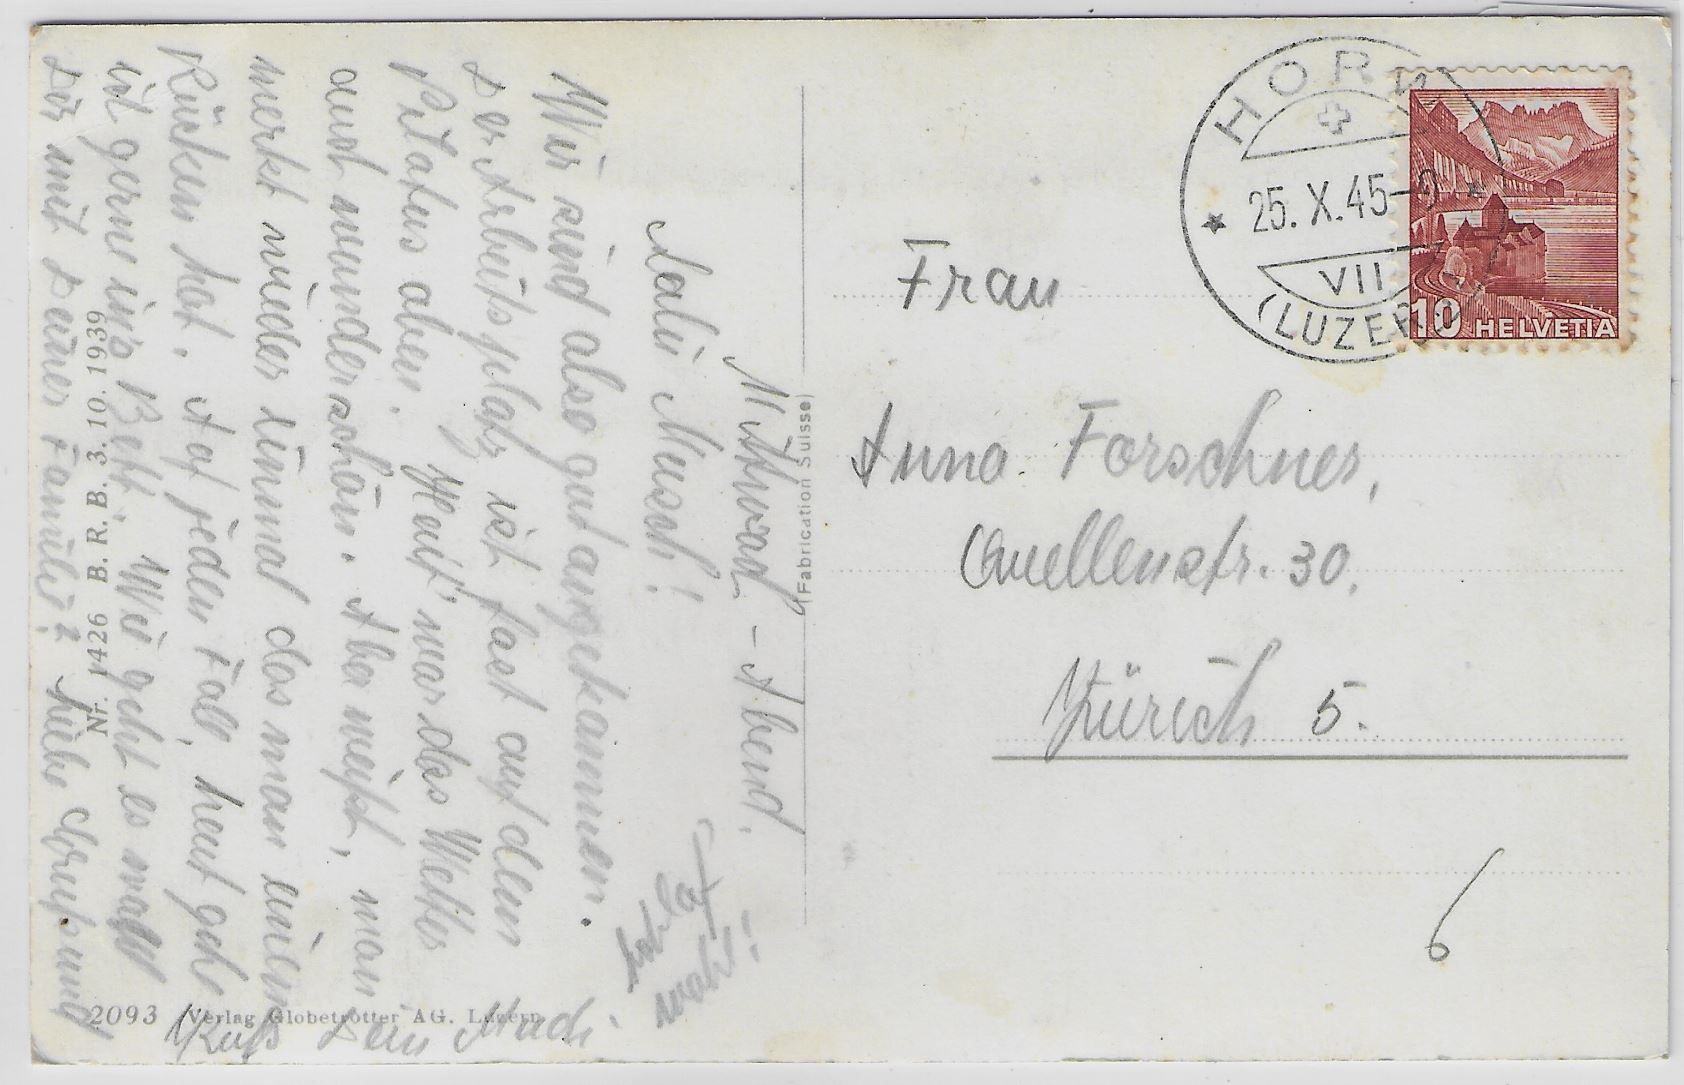 Mittwoch - Abend.
Salü Musch!
Wir sind also gut angekommen.
Der Arbeitsplatz ist fast auf dem
Pilatus oben. Heut' war das Wetter
auch wunderschön. Aber meist, man
merkt wieder einmal das man einen
Rücken hat. Auf jeden Fall, heut gehe
ich gerne in's Bett. Wie geht es
Dir mit Deiner Familie? Liebe Grüsse und
Kuss Dein
wahr!
Nr. 1426 B. R. B. 3. 10. 1939
2093 Verlag Globetrotter AG. Luzern
(Fabrication Suisse)
HORW
25. X. 45-9
VII
(LUZERN)
10 HELVETIA
Frau
Anna Forschner,
Quellenstr. 30.
Zürich 5.
6